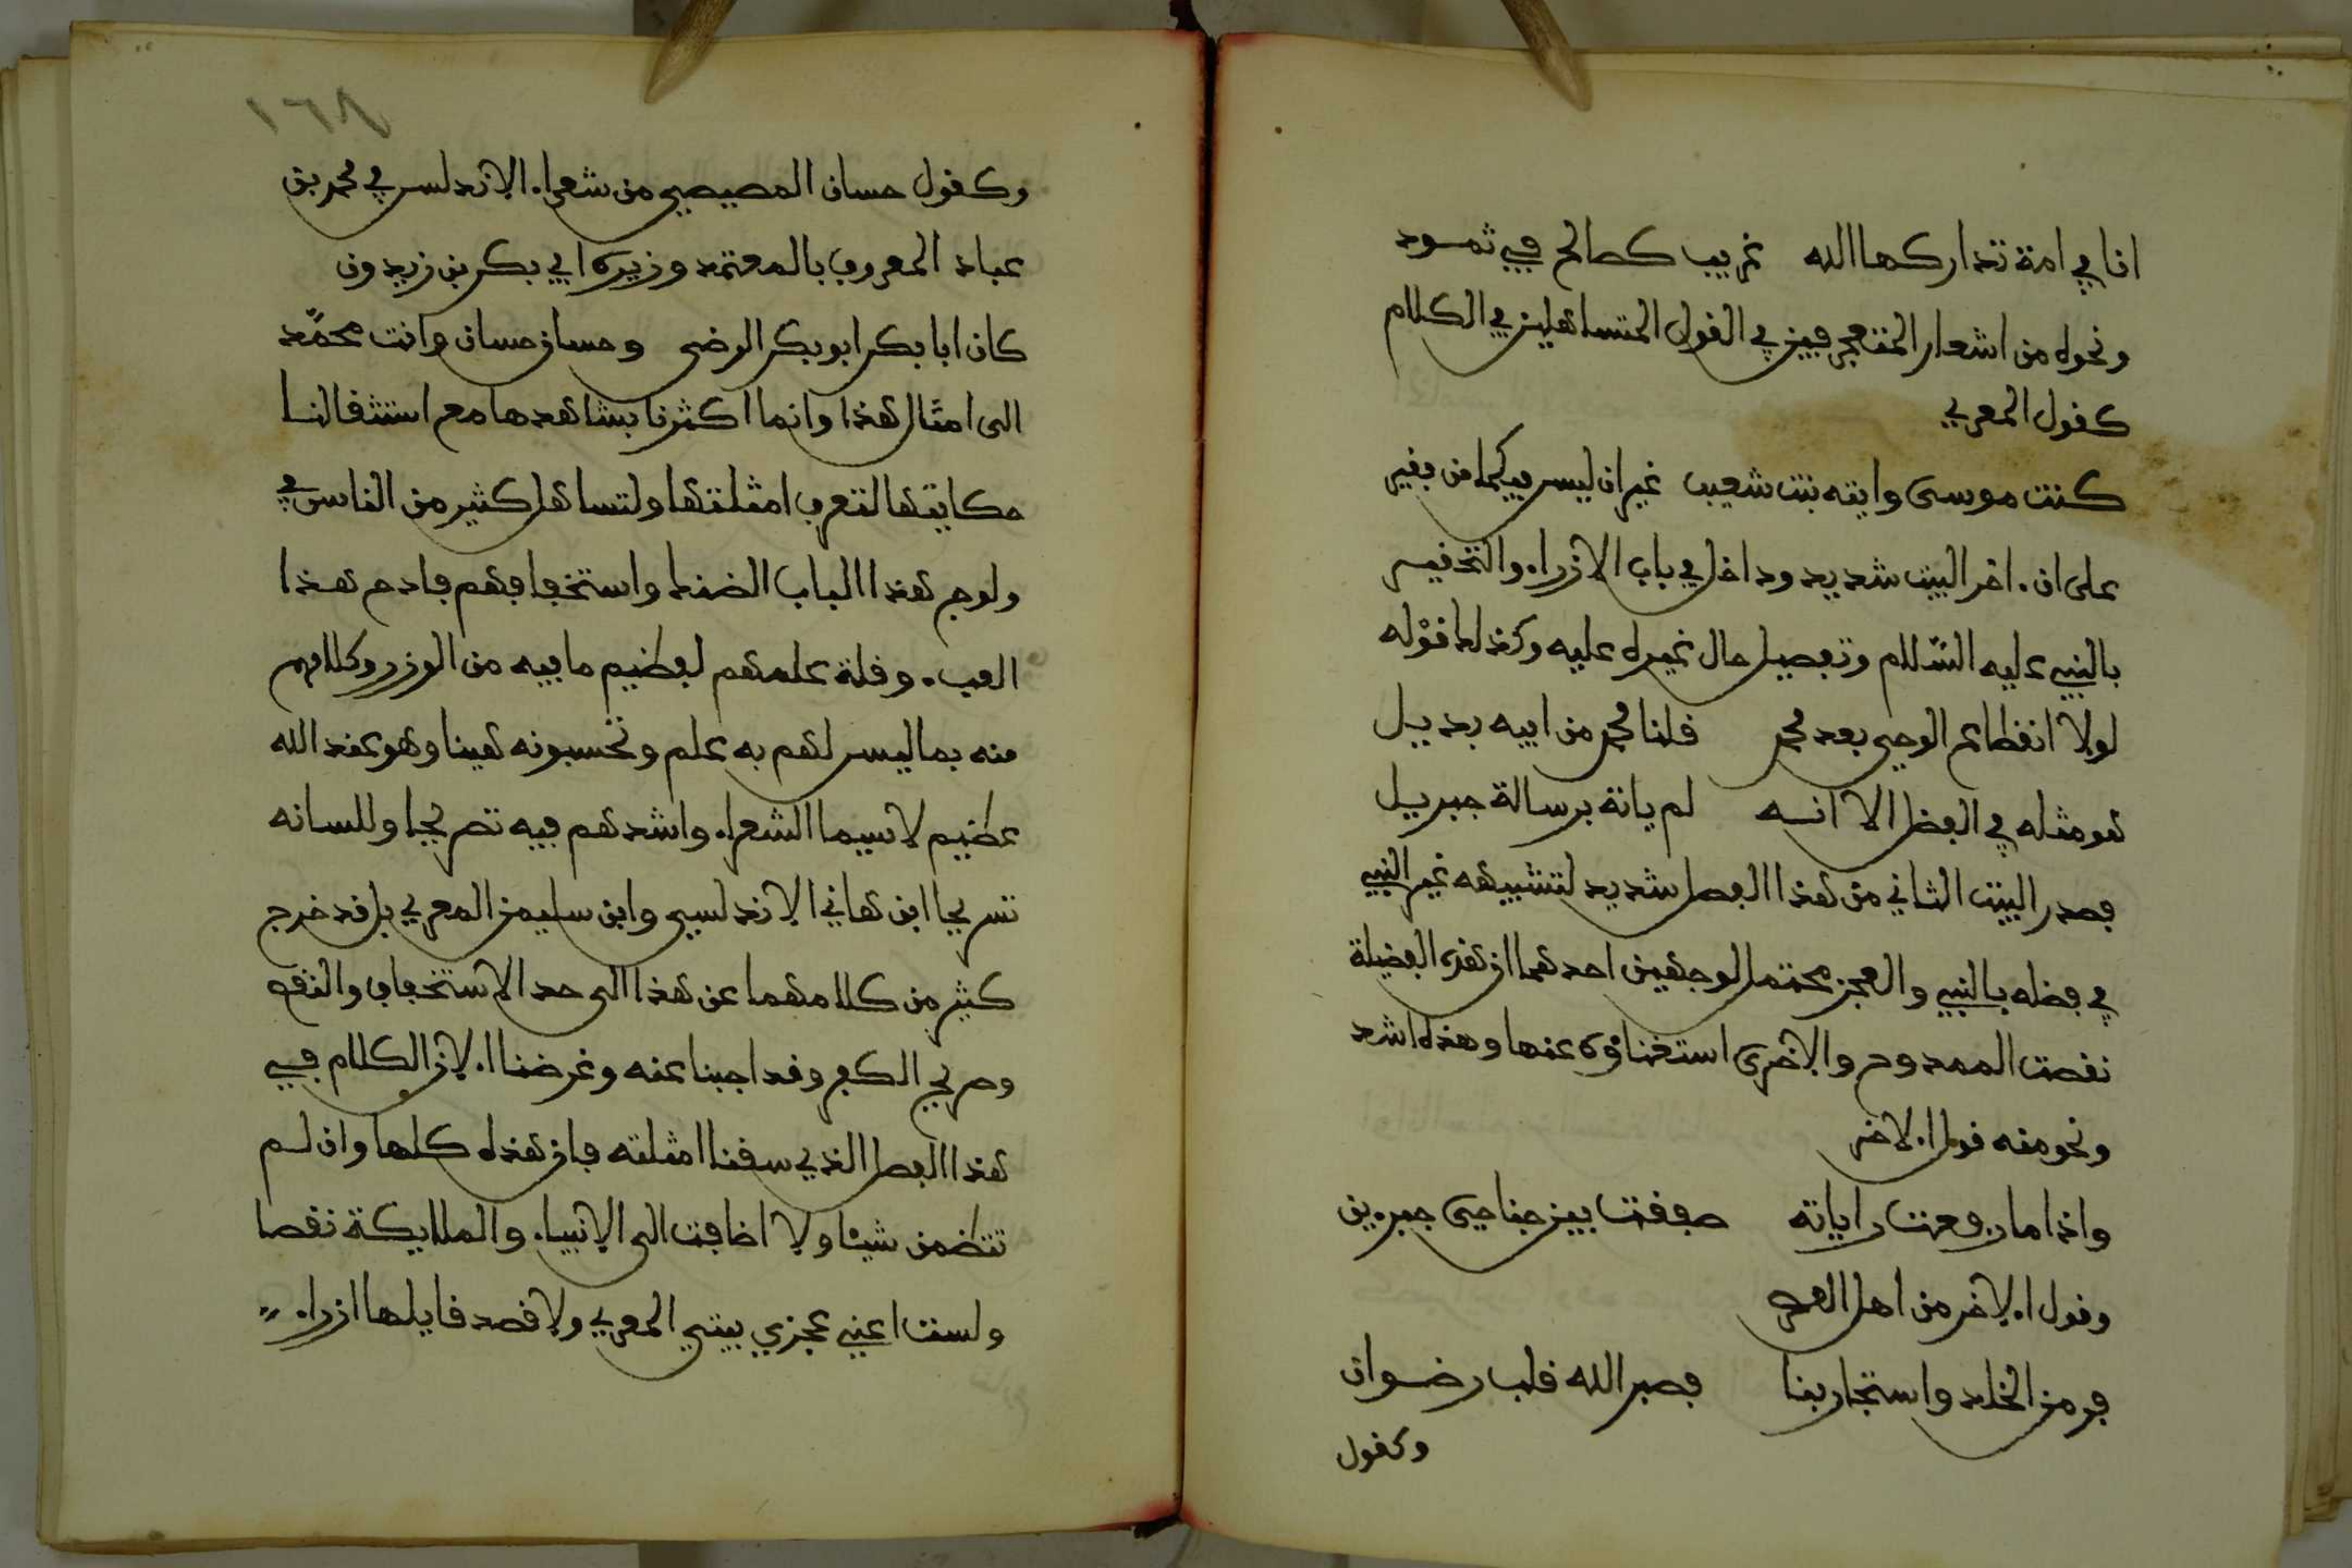 انا في امة تداركها الله غريب كصالح في ثمود
ونحوه من اشعار المتعجرفين في القول المتساهلين في الكلام
كقول المعري
كنت موسى وافته بنت شعيب غير ان ليس فيكما من فقير
على ان اخر البيت شديد وداخل في باب الازراء والتحقير
بالنبي عليه السّلام وتفضيل حال غيره عليه وكذلك قوله
لولا انقطاع الوحي بعد محمد قلنا محمد من ابيه بديل
هو مثله في الفضل الا انه لم ياته برسالة جبريل
فصدر البيت الثاني من هذا الفصل شديد لتشبيهه غير النبي
في فضله بالنبي والعجز محتمل لوجهين احدهما ان هذه الفضيلة
نقصت الممدوح والاخرى استغناؤه عنها وهذه اشد
ونحو منه قول الاخر
واذا ما رفعت راياته صفقت بين جناحي جبرين
وقول الاخر من اهل العصر
فر من الخلد واستجار بنا فصبر الله قلب رضوان
وكقول
١٦٨
وكقول حسان المصيصي من شعراء الاندلس في محمد بن
عباد المعروف بالمعتمد وزيره ابي بكر بن زيدون
كان ابا بكر ابو بكر الرضى وحسان حسان وانت محمّد
الى امثال هذا وانما اكثرنا بشاهدها مع استثقالنا
حكايتها لتعرف امثلتها ولتساهل كثير من الناس في
ولوج هذا الباب الضنك واستخفافهم فادح هذا
العبء وقلة علمهم لعظيم ما فيه من الوزر وكلامهم
منه بما ليس لهم به علم وتحسبونه هينا وهو عند الله
عظيم لا سيما الشعراء واشدهم فيه تصريحا وللسانه
تسريحا ابن هاني الاندلسي وابن سليمن المعري بل قد خرج
كثير من كلامهما عن هذا الى حد الاستخفاف والنقص
وصريح الكفر وقد اجبنا عنه وغرضنا الان الكلام في
هذا الفصل الذي سقنا امثلته فان هذه كلها وان لم
تتضمن شيئا ولا اضافت الى الانبياء والملايكة نقصا
ولست اعني عجزي بيتي المعري ولا قصد قايلها ازراء